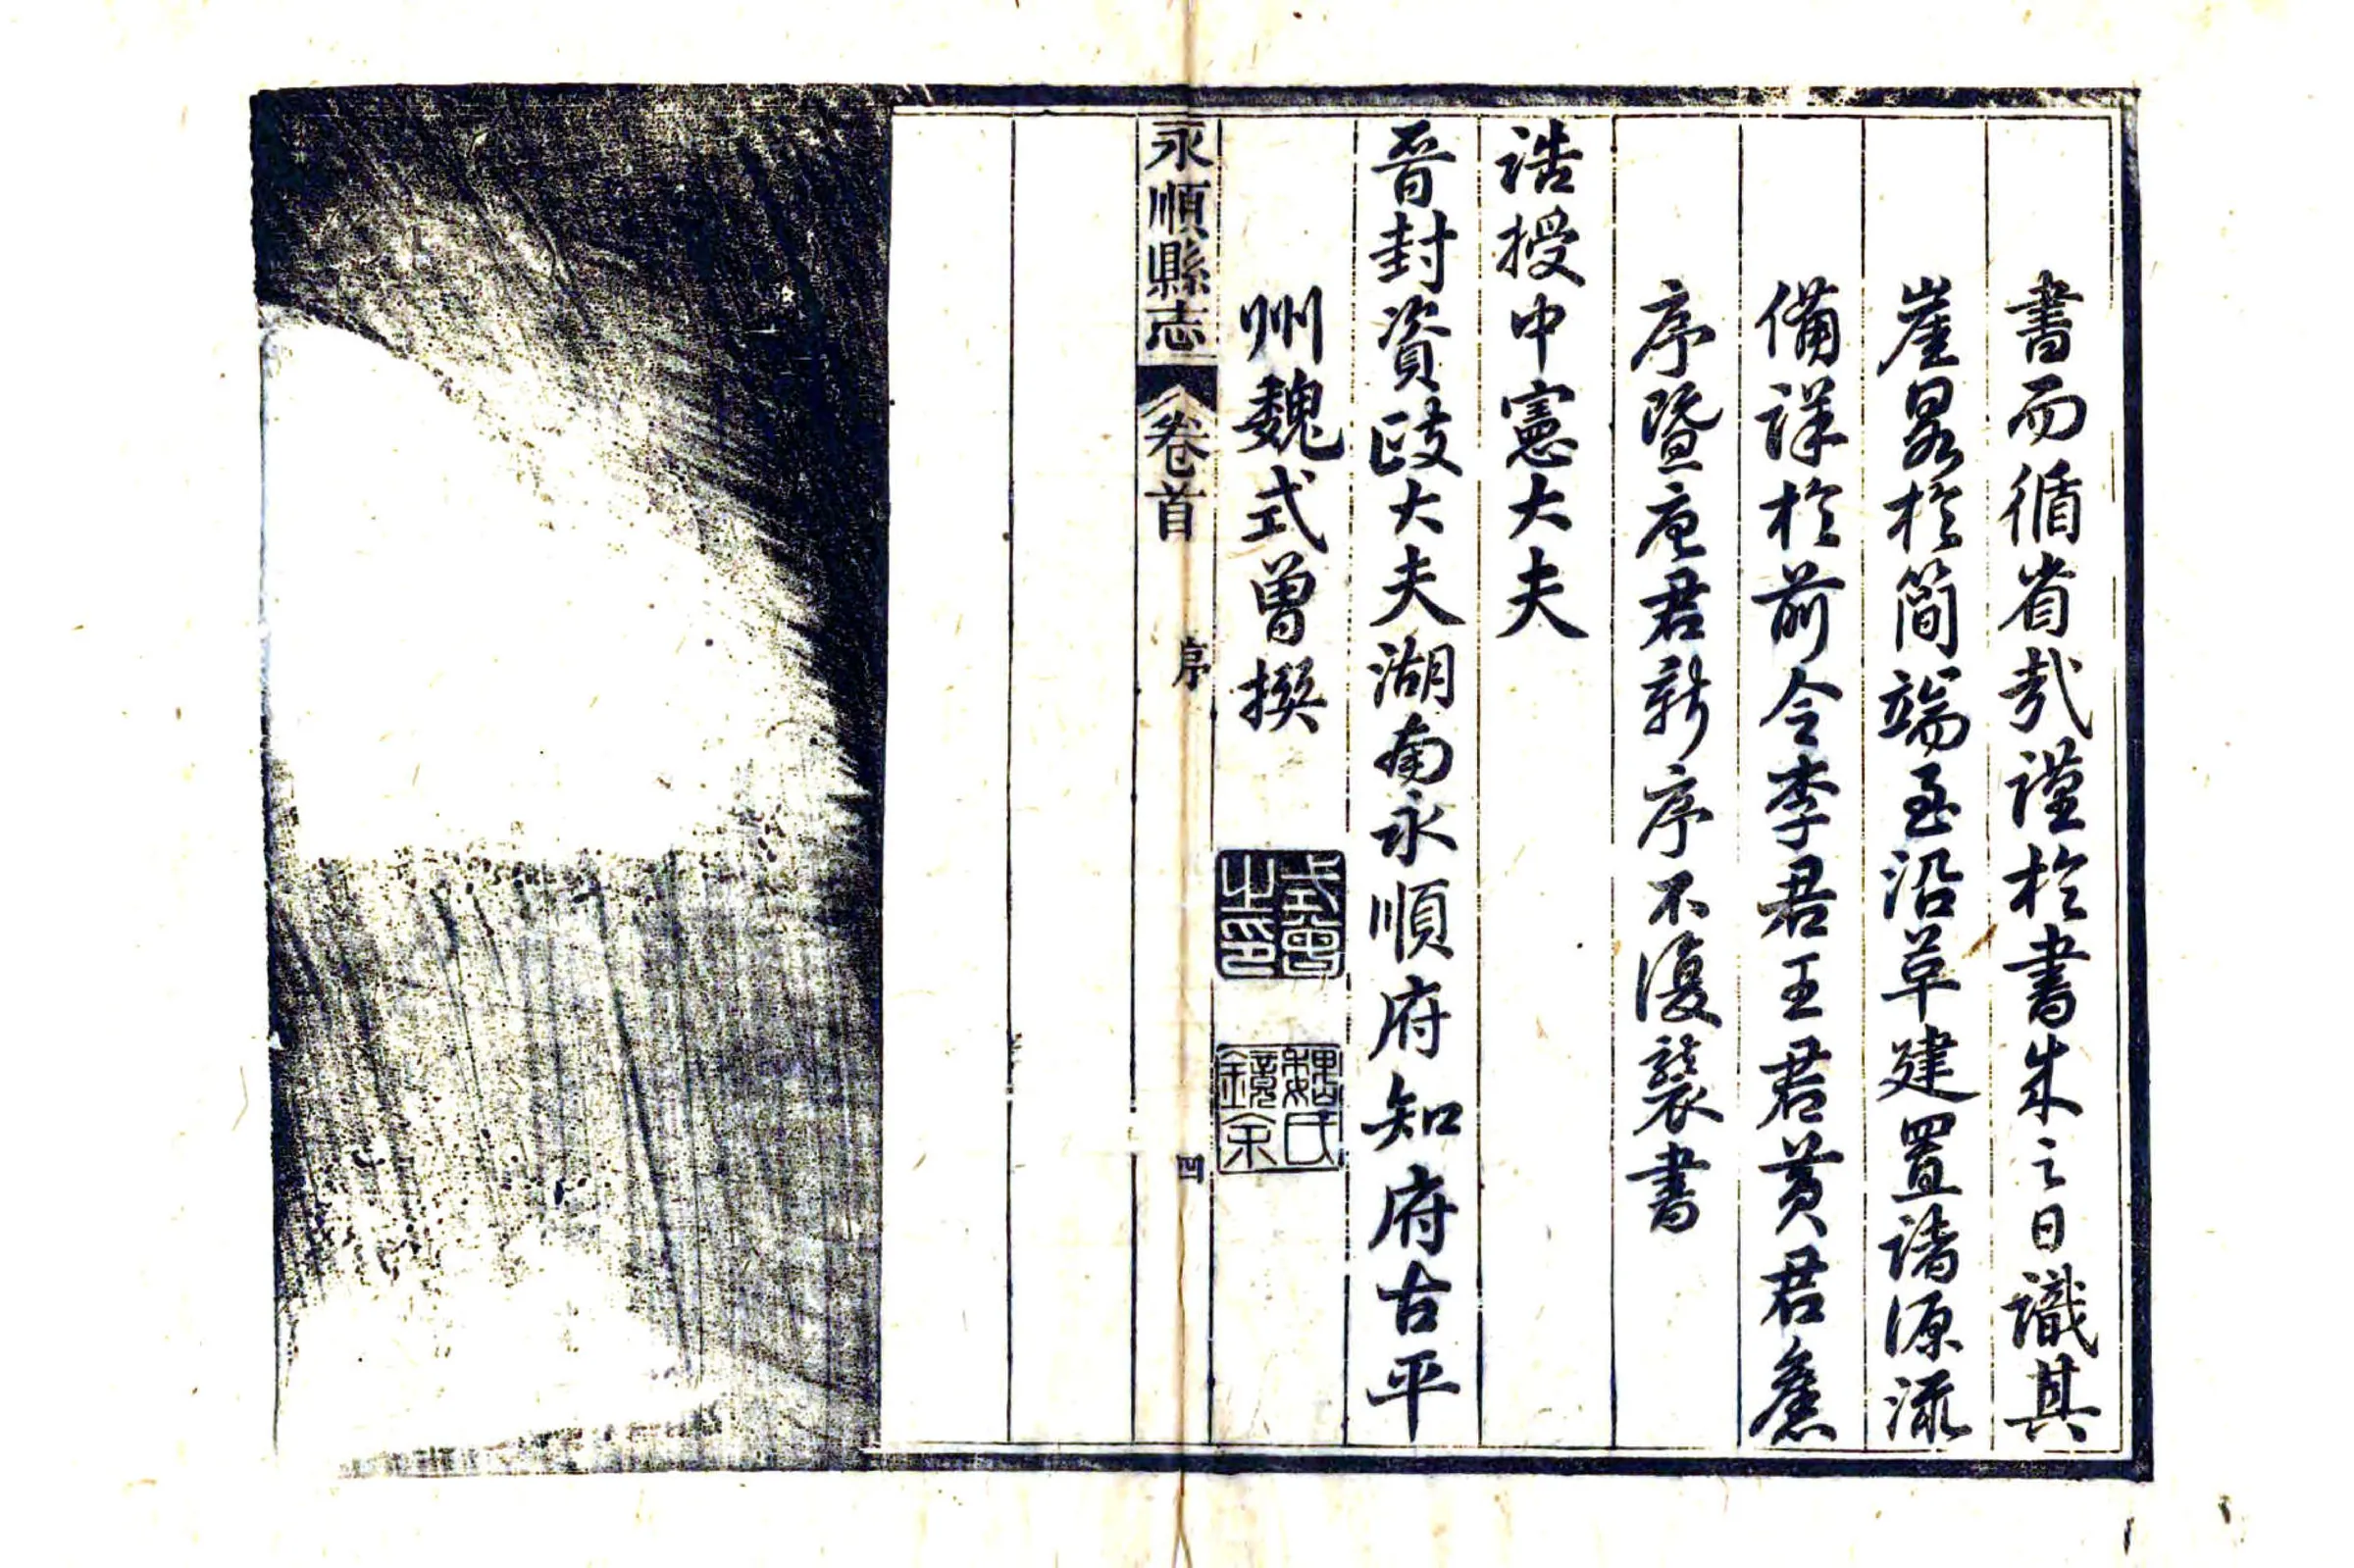 書而循省哉謹於書成之日識其
崖畧於簡端至沿革建置諸源流
備詳於前令李君王君黃君舊
序暨唐君新序不復襲書
誥授中憲大夫
晉封資政大夫湖南永順府知府古平
州魏式曾撰
式曾之印
魏氏鏡余
永順縣志
卷首
序
四